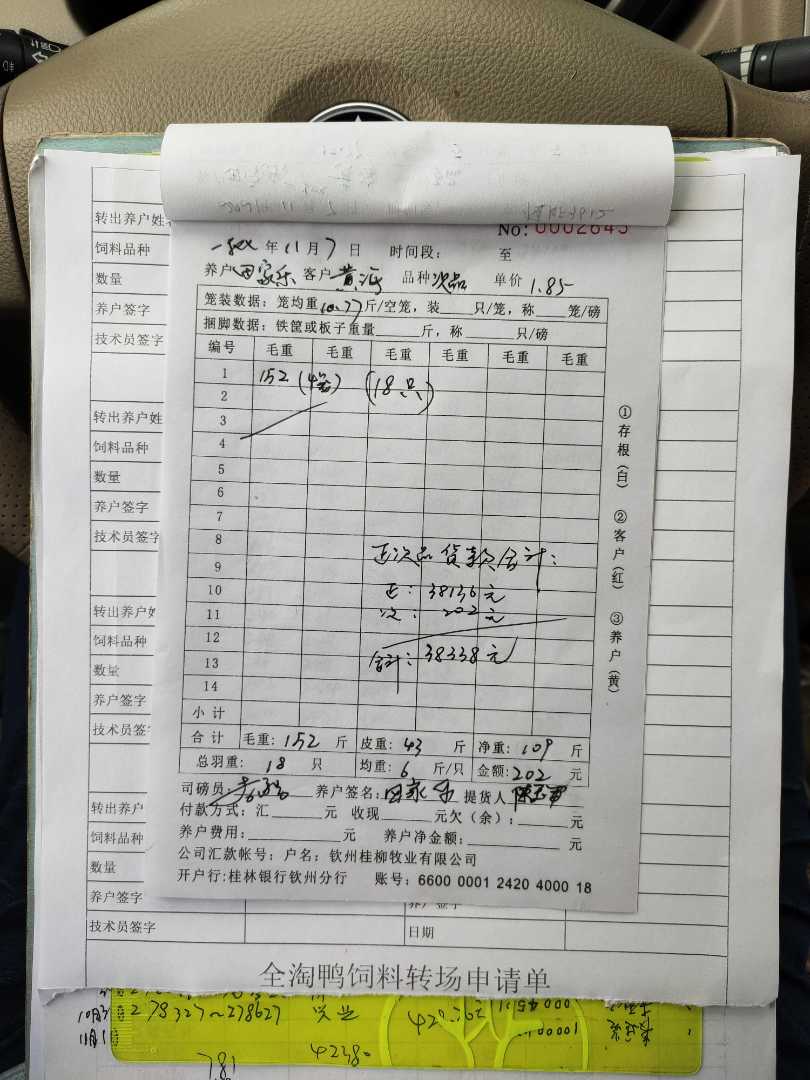 No: 0002645
年 11 月 7 日 时间段： 至
养户 田家乐 客户 黄 品种 次品 单价 1.85
笼装数据：笼均重 10.77 斤/空笼，装 只/笼，称 笼/磅
捆脚数据：铁筐或板子重量 斤，称 只/磅
编号 毛重 毛重 毛重 毛重 毛重 毛重
1 152 (4笼) (18只)
2
3
4
5
6
7
8
正次品货款合计：
9
10 正：38136元
11 次：202元
12
13 合计：38338元
14
小计
合计 毛重：152 斤 皮重：43 斤 净重：109 斤
总羽重：18 只 均重：6 斤/只 金额：202 元
司磅员： 养户签名：田家乐 提货人
付款方式：汇 元 收现 元欠（余）： 元
养户费用： 元 养户净金额： 元
公司汇款帐号：户名：钦州桂柳牧业有限公司
开户行：桂林银行钦州分行 账号：6600 0001 2420 4000 18
①存根（白） ②客户（红） ③养户（黄）
转出养户姓
饲料品种
数量
养户签字
技术员签字
转出养户姓
饲料品种
数量
养户签字
技术员签字
转出养户姓
饲料品种
数量
养户签字
技术员签
转出养户
饲料品种
数量
养户签字 养户签字
技术员签字 日期
全淘鸭饲料转场申请单
10月3 278327～278627
11月1
4238
781